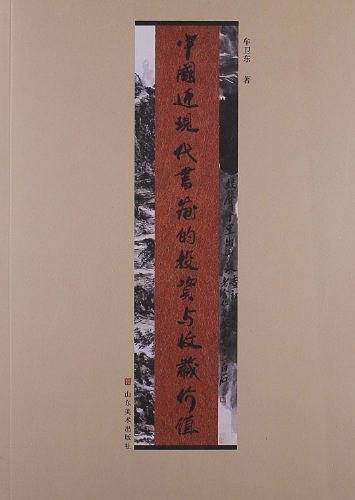 牟卫东 著
中國近現代書画的投资与收藏价值
山东美术出版社